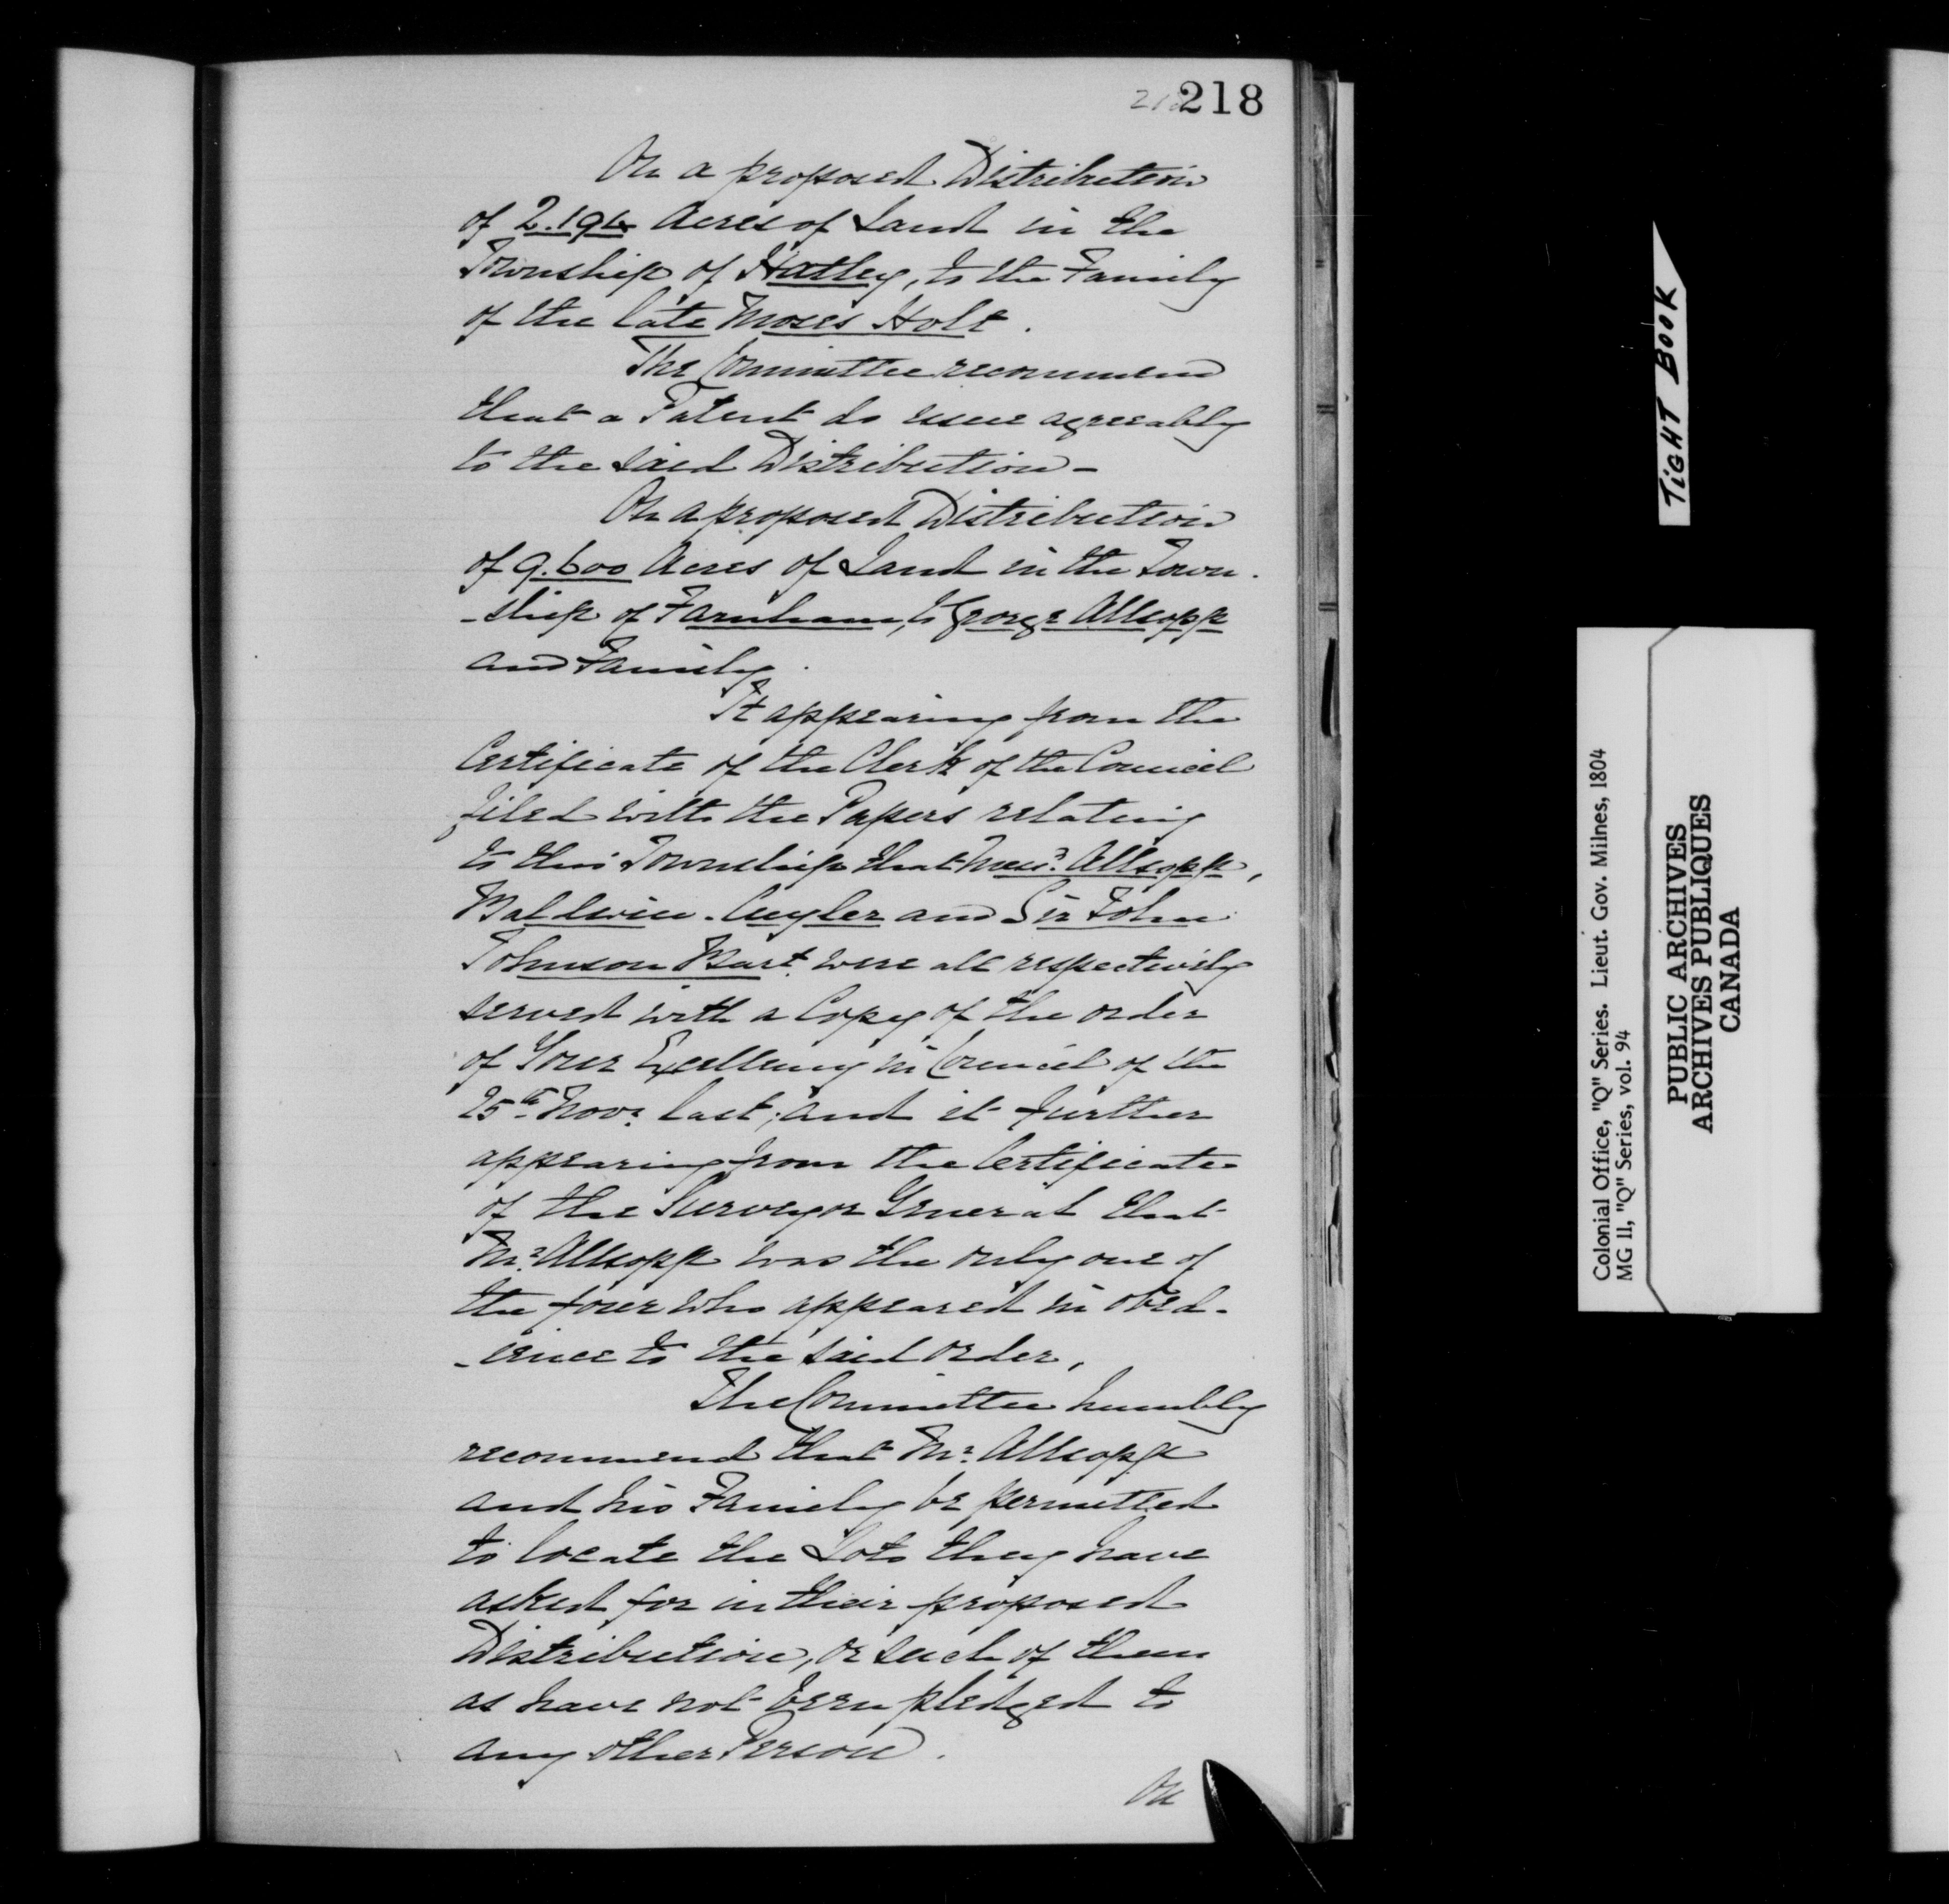 218
On a proposed Distribution
of 2.194 Acres of Land in the
Township of Hatley, to the Family
of the late Moses Holt.
The Committee recommend
that a Patent do issue agreeably
to the said Distribution -
On a proposed Distribution
of 9.600 Acres of Land in the Town-
-ship of Farnham, to George Allsopp
and Family.
It appearing from the
Certificate of the Clerk of the Council
filed with the Papers relating
to this Township that Messrs. Allsopp,
Baldwin. Cuyler and Sir John
Johnson Bart. were all respectively
served with a Copy of the order
of Your Excellency in Council of the
25th Novr. last; and it further
appearing from the Certificate
of the Surveyor General that
Mr. Allsopp was the only one of
the four who appeared in obed-
-ience to the said order,
The Committee humbly
recommend that Mr. Allsopp
and his Family be permitted
to locate the Lots they have
asked for in their proposed
Distribution, or such of them
as have not been pledged to
any other Person.
On
TIGHT BOOK
Colonial Office, "Q" Series. Lieut. Gov. Milnes, 1804
MG 11, "Q" Series, vol. 94
PUBLIC ARCHIVES
ARCHIVES PUBLIQUES
CANADA